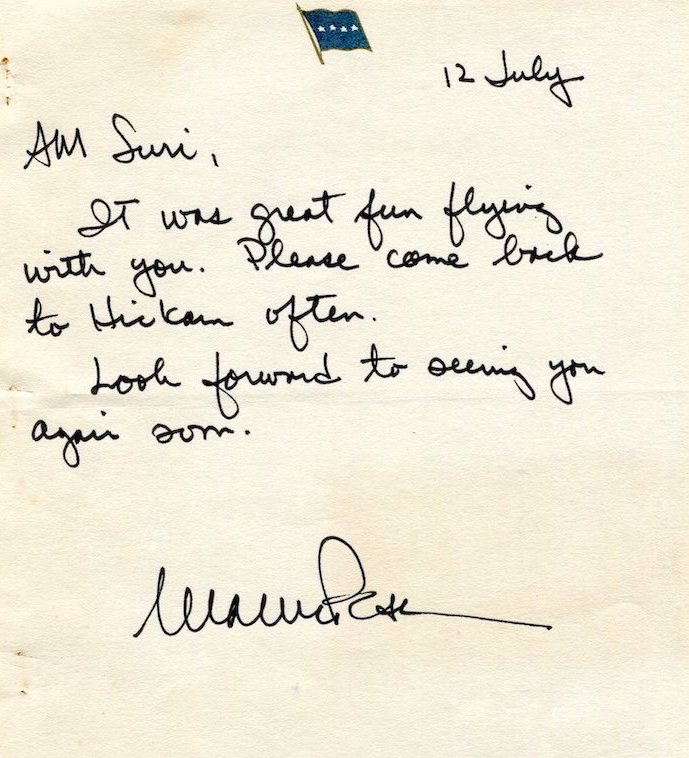 12 July
AM Suri,
It was great fun flying
with you. Please come back
to Hickam often.
Look forward to seeing you
again soon.